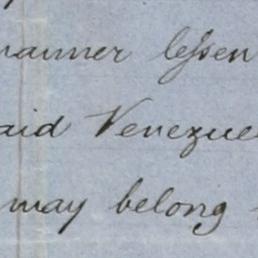 manner lessen
said Venezuel
may belong